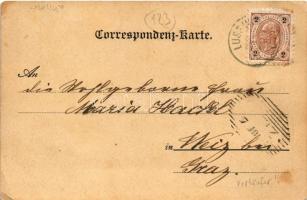 (123)
Correspondenz-Karte.
2 2
An
die Wohlgeborne Frau
Maria Hackl
in Weiz bei
Graz.